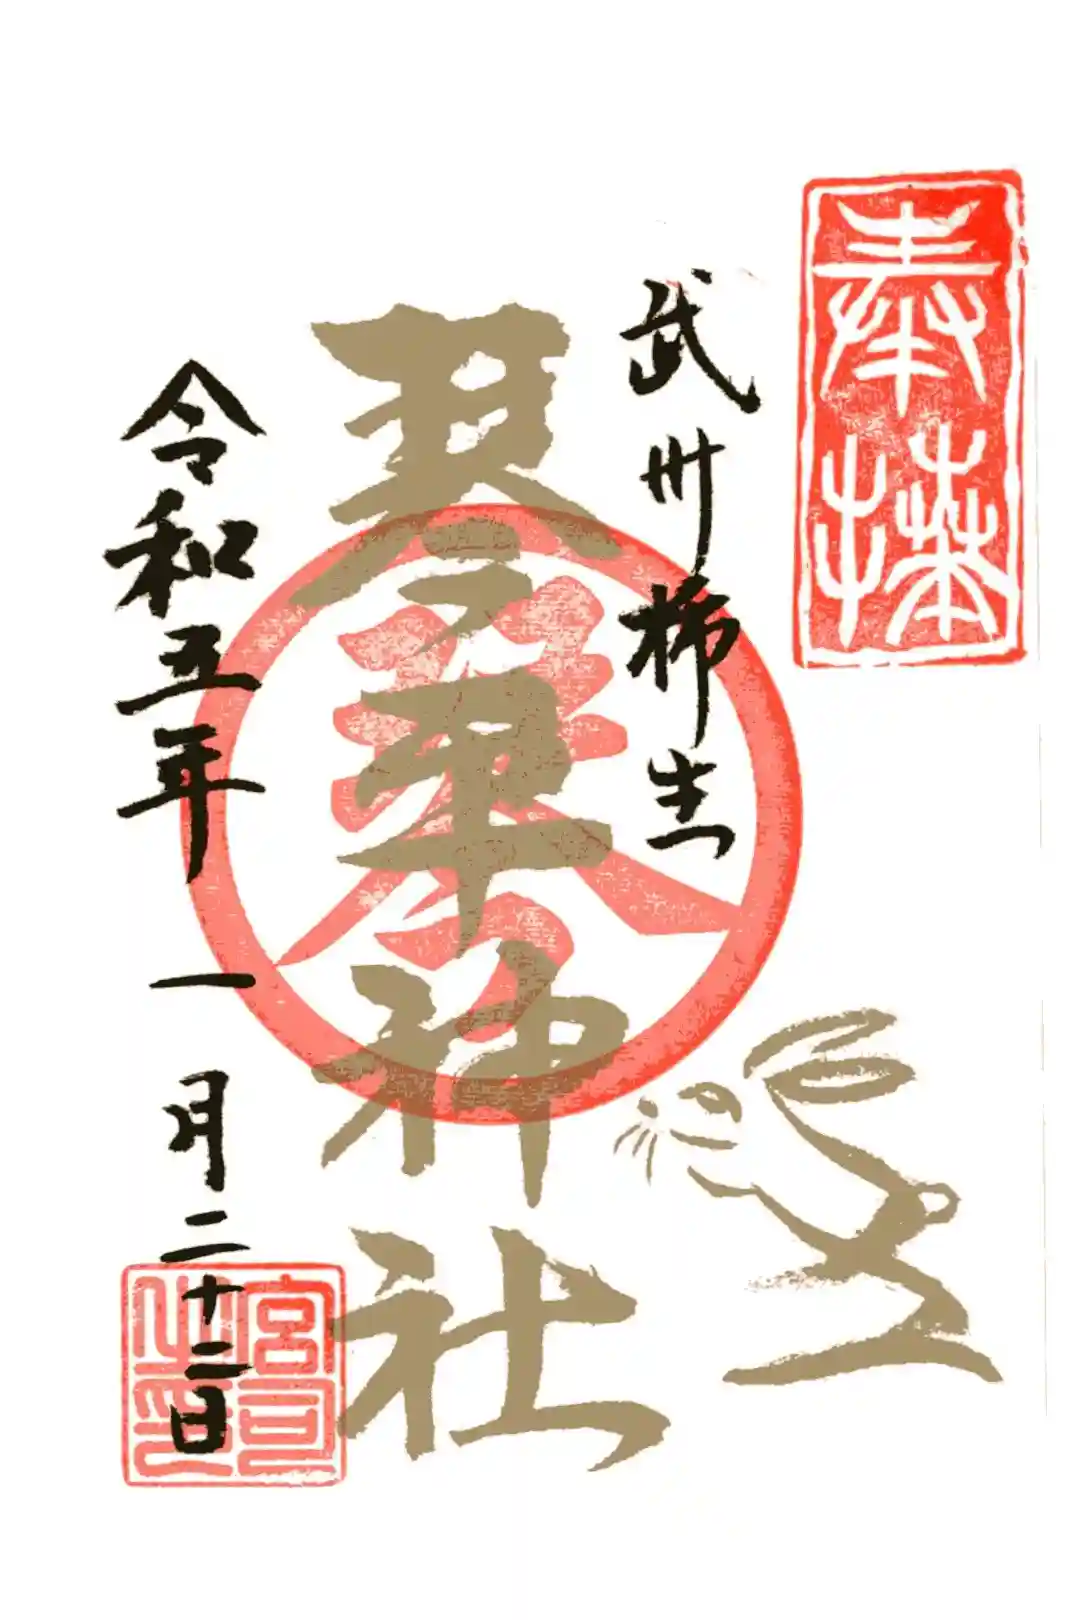 奉拝
武州柿生
琴平神社
金
令和五年一月二十二日
宮司之印